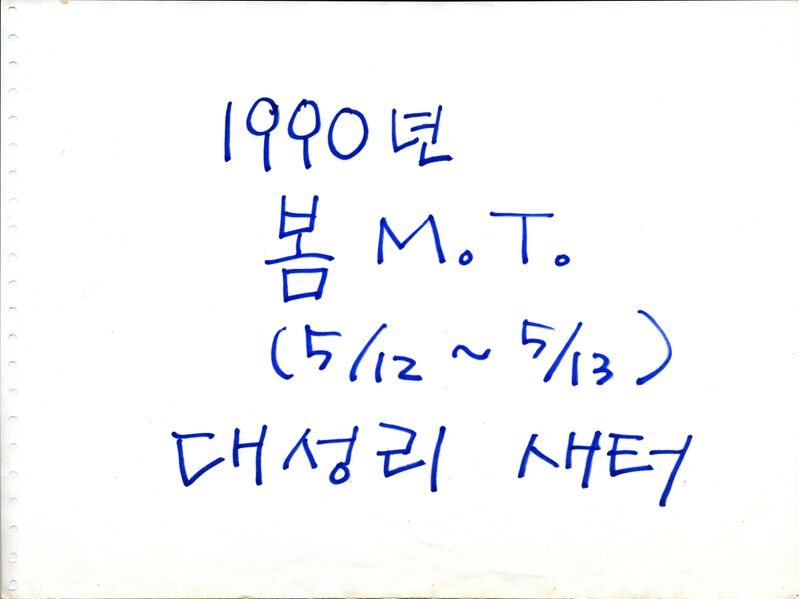 1990년
봄 M.T.
(5/12 ~ 5/13)
대성리 새터